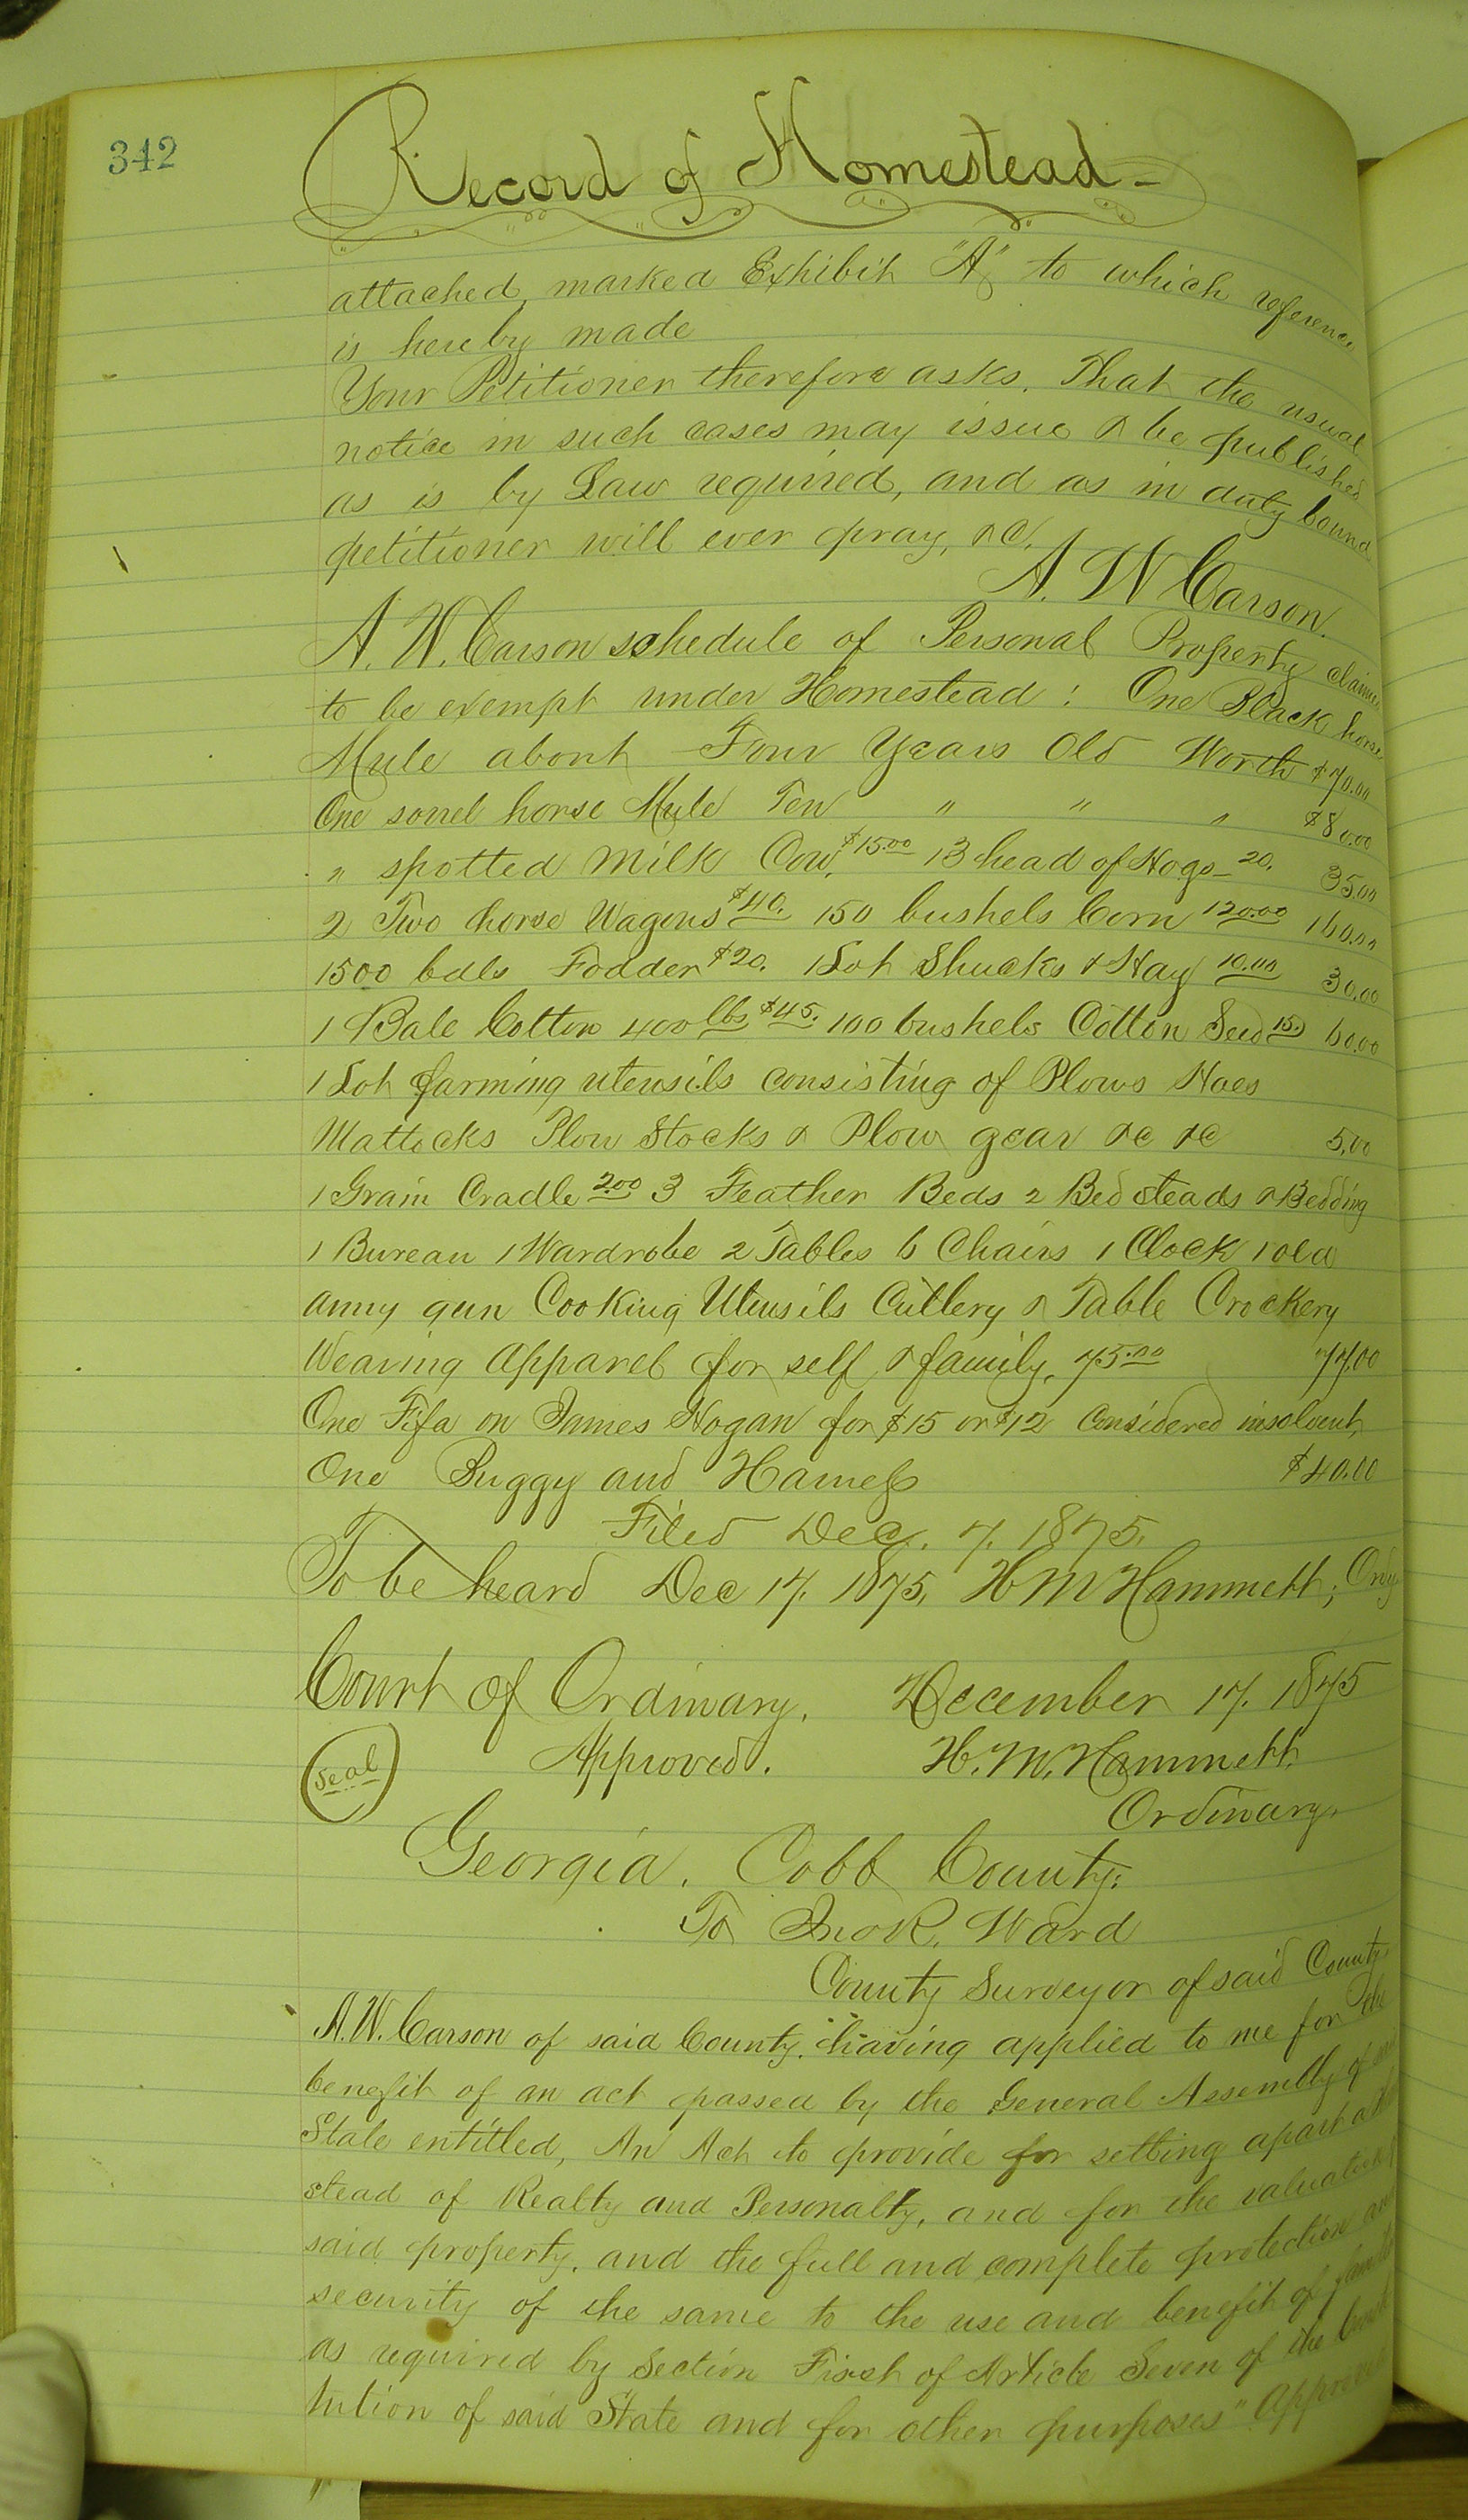 342
Record of Homestead -
attached, marked Exhibit "A" to which reference
is hereby made
Your Petitioner therefore asks. That the usual
notice in such cases may issue & be published
as is by Law required, and as in duty bound
petitioner will ever pray, &c.
A. W Carson.
A. W. Carson schedule of Personal Property claimed
to be exempt under Homestead : One Black horse
Mule about Four Years Old Worth $70.00
One sorrel horse Mule Ten " " " $80.00
" spotted Milk Cow, $15.00 13 head of Hogs - 20. 35.00
2 Two horse Wagons $40. 150 bushels Corn 120.00 160.00
1500 bdls Fodder $20. 1 Lot Shucks & Hay 10.00 30.00
1 Bale Cotton 400 lbs $45. 100 bushels Cotton Seed 15. 60.00
1 Lot farming utensils consisting of Plows Hoes
Mattocks Plow Stocks & Plow gear &c &c 5.00
1 Grain Cradle 2.00 3 Feather Beds 2 Bed steads & Bedding
1 Bureau 1 Wardrobe 2 Tables 6 Chairs 1 Clock 1 old
army gun Cooking Utensils Cutlery & Table Crockery
Wearing Apparel for self & family, 75.00 77.00
One Fifa on James Hogan for $15 or $12 Considered insolvent,
One Buggy and Harness $40.00
Filed Dec. 7. 1875.
To be heard Dec 17. 1875, H M Hammett, Ordy
Court of Ordinary. December 17. 1875
(Seal) Approved. H. M. Hammett.
Ordinary.
Georgia. Cobb County:
To Jno R. Ward
County Surveyor of said County
A. W. Carson of said County. having applied to me for the
benefit of an act passed by the General Assembly of said
State entitled, An Act to provide for setting apart a
stead of Realty and Personalty, and for the valuation of
said property, and the full and complete protection and
security of the same to the use and benefit of families
as required by Section First of Article Seven of the Consti
tution of said State and for other purposes" Approved